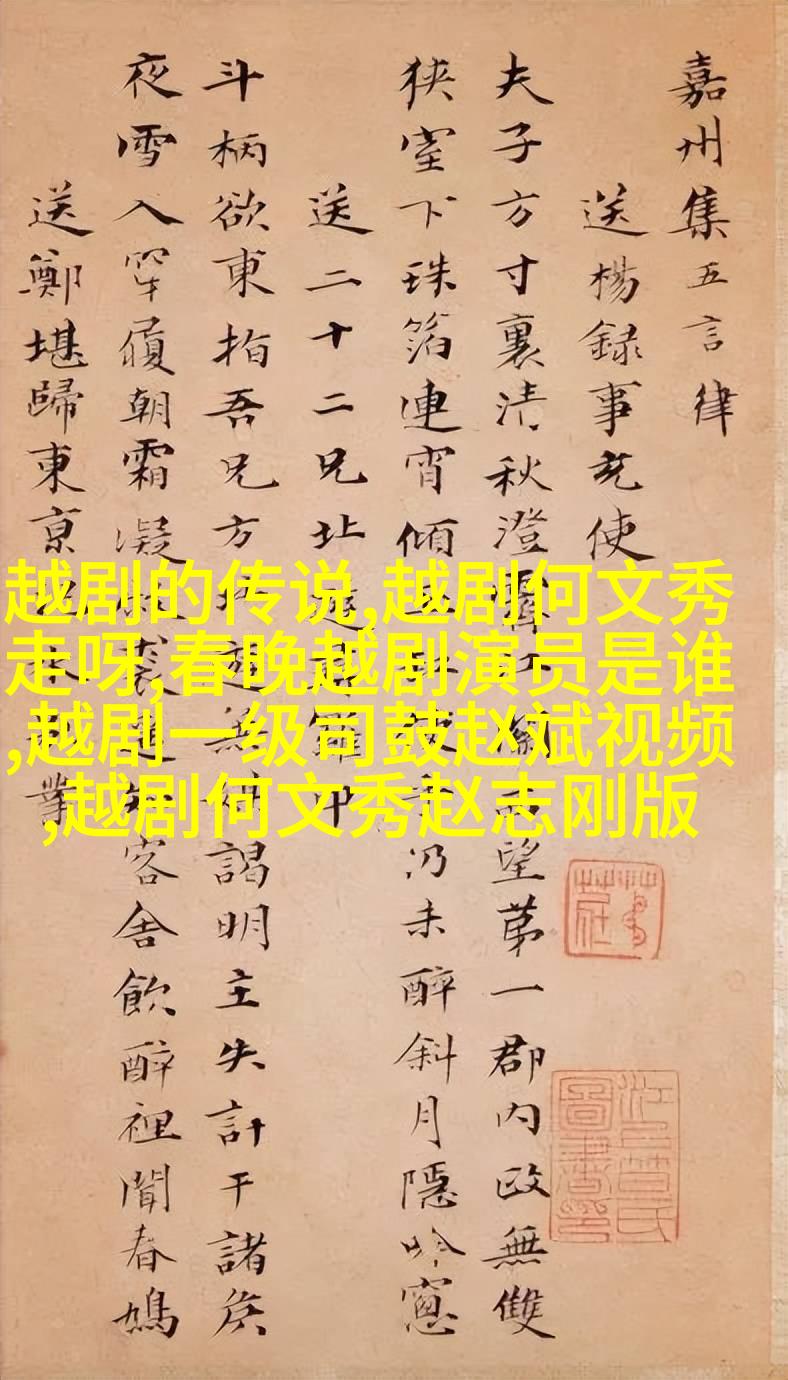 嘉州集五言律
送楊録事充使
夫子方寸裏清秋澄霽江關西望第一郡内政無雙
狹室下珠箔連宵傾玉缸使乎仍未醉斜月隱吟窓
送二十二兄北遊尋羅中
斗柄欲東指吾兄方北遊無媒謁明主失計干諸侯
夜雪入穿履朝霜凝裘遥知客舍飲醉裡聞春鳩
送鄭堪歸東京水業
越剧的传说,越剧何文秀
走呀,春晚越剧演员是谁
,越剧一级司鼓赵斌视频
,越剧何文秀赵志刚版